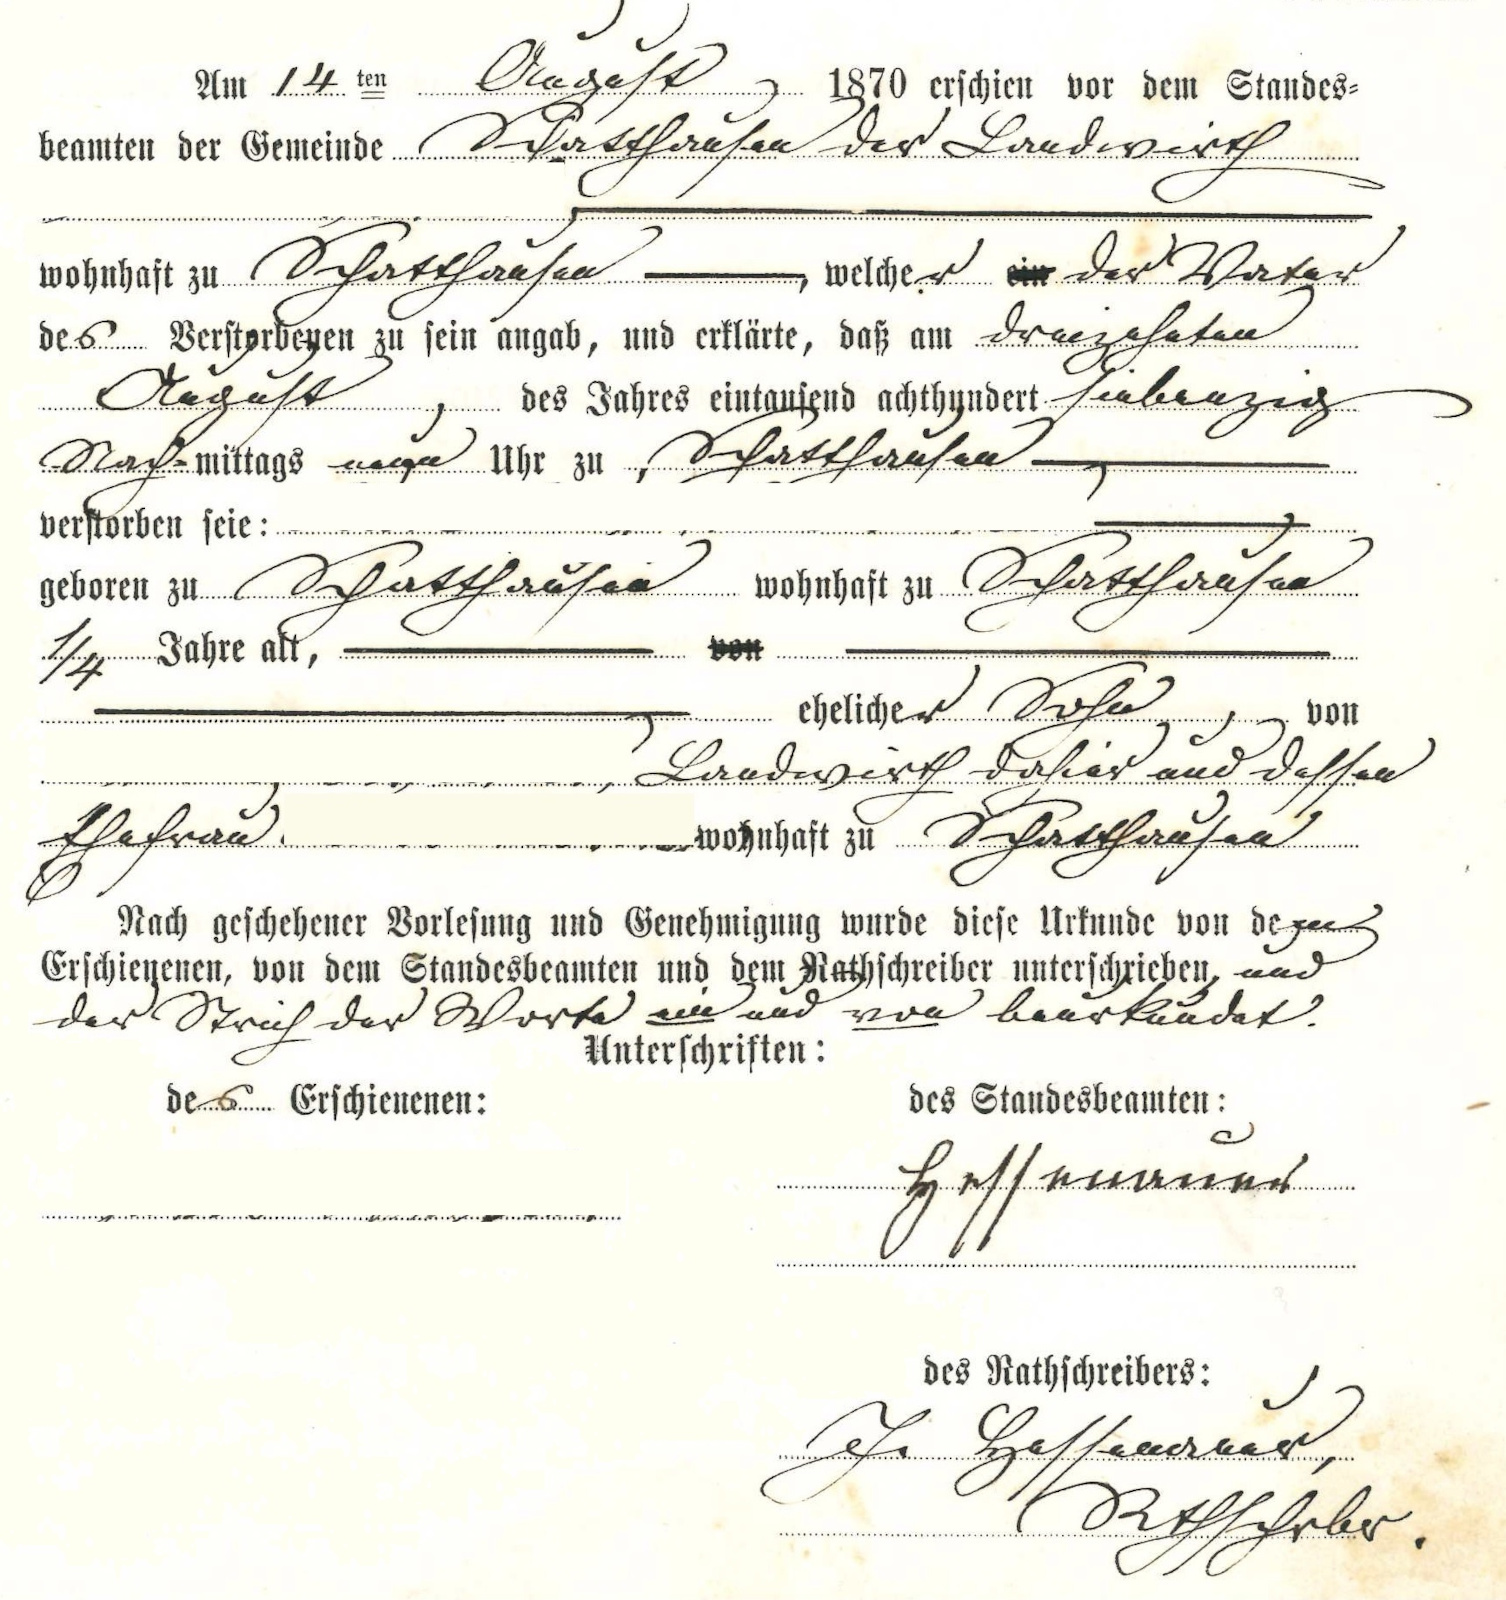 Am 14ten August 1870 erschien vor dem Standes=
beamten der Gemeinde Schatthausen der Landwirth
wohnhaft zu Schatthausen, welcher ein der Vater
des Verstorbenen zu sein angab, und erklärte, daß am dreizehnten
August, des Jahres eintausend achthundert siebenzig
Nach=mittags neun Uhr zu Schatthausen
verstorben seie:
geboren zu Schatthausen wohnhaft zu Schatthausen
1/4 Jahre alt, von
ehelicher Sohn, von
Landwirth dahier und dessen
Ehefrau wohnhaft zu Schatthausen
Nach geschehener Vorlesung und Genehmigung wurde diese Urkunde von dem
Erschienenen, von dem Standesbeamten und dem Rathschreiber unterschrieben, und
der Strich der Worte ein und von beurkundet.
Unterschriften:
des Erschienenen: des Standesbeamten:
Hessenauer
des Rathschreibers:
Hessenauer,
Rthschrbr.